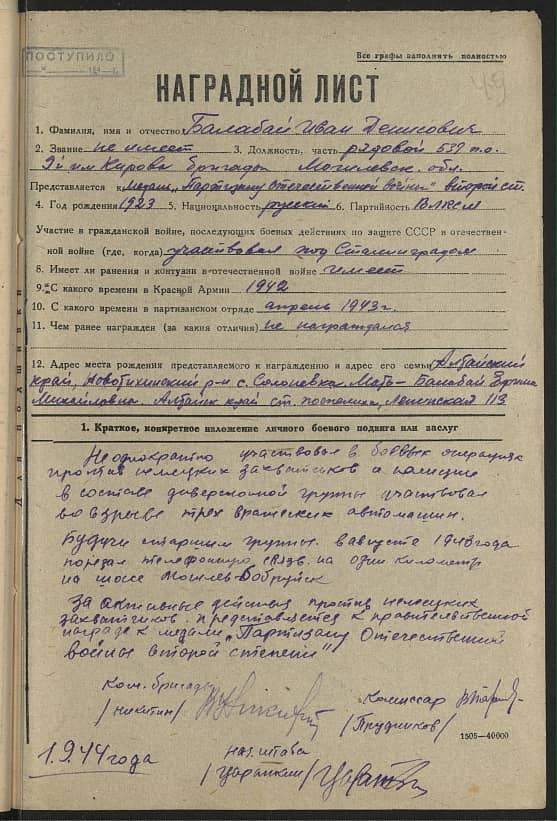 ПОСТУПИЛО
Все графы заполнять полностью
49
НАГРАДНОЙ ЛИСТ
1. Фамилия, имя и отчество Балабай Иван Денисович
2. Звание не имеет 3. Должность, часть рядовой 539 п.о.
9й им Кирова бригады Могилевск. обл.
Представляется к медали „Партизану отечественной войны" второй ст.
4. Год рождения 1923 5. Национальность русский 6. Партийность ВЛКСМ
Участие в гражданской войне, последующих боевых действиях по защите СССР и отечествен-
ной войне (где, когда) участвовал под Сталинградом
8. Имеет ли ранения и контузии в отечественной войне имеет
9. С какого времени в Красной Армии 1942
10. С какого времени в партизанском отряде апрель 1943г.
11. Чем ранее награжден (за какия отличия) не награждался
12. Адрес места рождения представляемого к награждению и адрес его семьи Алтайский
край, Новотихинский р-н с. Солоневка Мать - Балабай
Михайловна. Алтайск край ст. поспелиха, Ленинская 113
Для подшивки
1. Краткое, конкретное изложение личного боевого подвига или заслуг
Неоднократно участвовал в боевых операциях
против немецких захватчиков и полиции
в составе диверсионой группы участвовал
во взрыве трех вражеских автомашин.
Будучи старшим группы в августе 1943 года
порвал телефонную связь на один километр
на шоссе Могилев-Бобруйск
За активные действия против немецких
захватчиков представляется к правительственной
награде к медали „Партизану Отечественной
войны второй степени"
Ком. бригады
/Никитин/
Комиссар
/Прудников/
1505—40000
1.9.44 года
нач. штаба